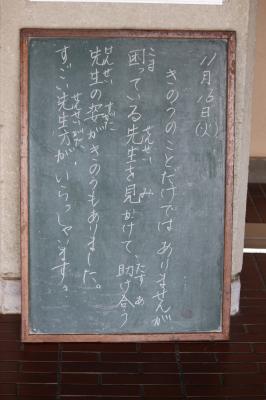 11月16日(火)
きのうのことだけではありませんが
困っている先生を見かけて、助け合う
先生の姿がきのうもありました。
すごい先生方が、いらっしゃいます。